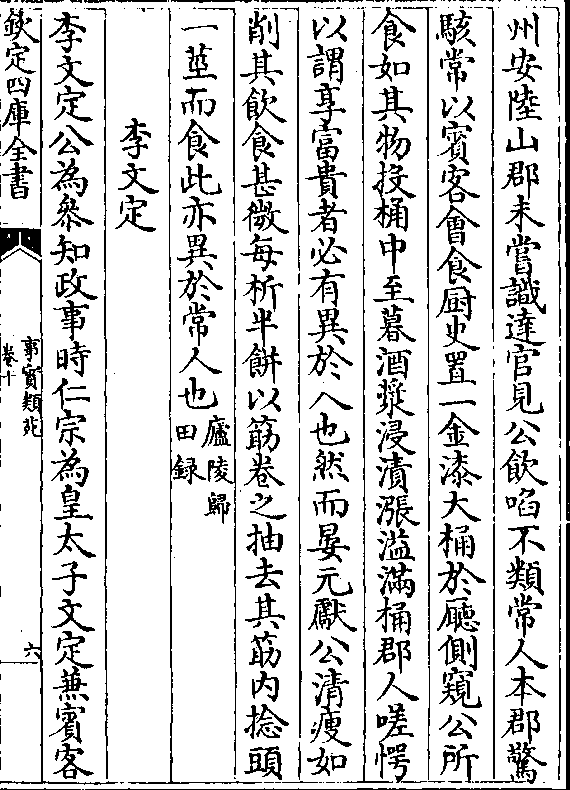 州安陸山郡未嘗識達官見公飲啗不類常人本郡驚
駭常以賓客會食厨史置一金漆大桶於廳側窺公所
食如其物投桶中至暮酒漿浸漬漲溢滿桶郡人嗟愕
以謂享富貴者必有異於人也然而晏元獻公清瘦如
削其飲食甚微每析半餅以筯卷之抽去其筯内捻頭
一莖而食此亦異於常人也廬陵歸
田録
李文定
李文定公為叅知政事時仁宗為皇太子文定兼賓客
欽定四庫全書
事實類苑
卷十
六